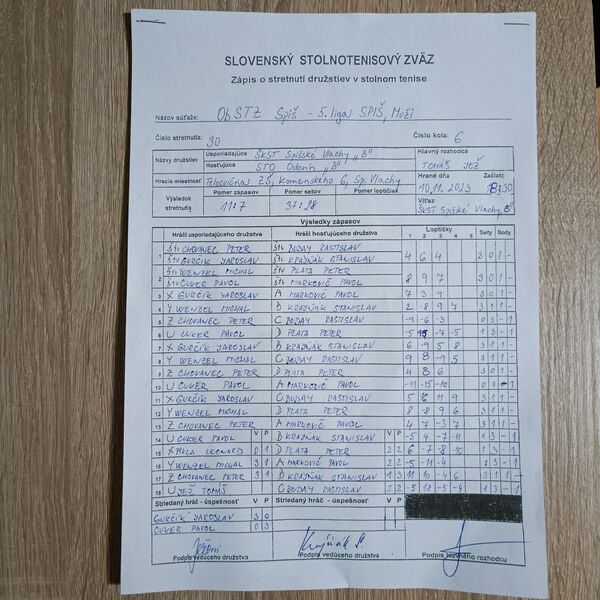 SLOVENSKÝ STOLNOTENISOVÝ ZVÄZ
Zápis o stretnutí družstiev v stolnom tenise
Názov súťaže: ObSTZ Spiš - 5. liga SPIŠ, Muži
Číslo stretnutia: 30 Číslo kola: 6
Názov družstiev Usporiadajúce ŠKST Spišské Vlachy "B" Hlavný rozhodca
Hosťujúce STO Odorín "B" TOMÁŠ JEŽ
Hracia miestnosť Telocvičňa ZŠ, Komenského 6, Sp. Vlachy Hrané dňa Začiatok
Výsledok stretnutia Pomer zápasov Pomer setov Pomer loptičiek 10.11.2023 18:30
11:7 37:28 Víťaz
ŠKST Spišské Vlachy "B"
Výsledky zápasov
Hráči usporiadajúceho družstva Hráči hosťujúceho družstva Loptičky Sety Body
1 2 3 4 5
1 štv CHOVANEC PETER štv BUDAY RASTISLAV
štv GURČÍK JAROSLAV štv KRAJŇÁK STANISLAV 4 6 4 3 0 1 -
2 štv WENZEL MICHAL štv PLATA PETER
štv CUKER PAVOL štv MARKOVIČ PAVOL 8 9 7 3 0 1 -
3 X GURČÍK JAROSLAV A MARKOVIČ PAVOL 7 3 9 3 0 1 -
4 Y WENZEL MICHAL B KRAJŇÁK STANISLAV 2 -8 9 7 3 1 1 -
5 Z CHOVANEC PETER C BUDAY RASTISLAV -9 -6 -3 0 3 - 1
6 U CUKER PAVOL D PLATA PETER -7 -5 1 3 - 1
7 X GURČÍK JAROSLAV B KRAJŇÁK STANISLAV 6 -9 5 8 3 1 1 -
8 Y WENZEL MICHAL C BUDAY RASTISLAV 9 8 -9 5 3 1 1 -
9 Z CHOVANEC PETER D PLATA PETER 4 8 6 3 0 1 -
10 U CUKER PAVOL A MARKOVIČ PAVOL -11 -15 -10 0 3 - 1
11 X GURČÍK JAROSLAV C BUDAY RASTISLAV 11 9 3 1 1 -
12 Y WENZEL MICHAL D PLATA PETER 8 -8 9 6 3 1 1 -
13 Z CHOVANEC PETER A MARKOVIČ PAVOL 4 7 -3 7 3 1 1 -
14 U CUKER PAVOL V P B KRAJŇÁK STANISLAV V P -5 4 -7 -11 1 3 - 1
15 X PIKLA LEONARD 0 1 D PLATA PETER 2 2 6 -7 -8 1 3 - 1
16 Y WENZEL MICHAL 3 1 A MARKOVIČ PAVOL 2 2 -5 -11 -4 0 3 - 1
17 Z CHOVANEC PETER 3 1 B KRAJŇÁK STANISLAV 1 3 11 -4 6 3 1 1 -
18 U JEŽ TOMÁŠ C BUDAY RASTISLAV 2 2 -5 -5 -4 1 3 - 1
Striedaný hráč - úspešnosť V P Striedaný hráč - úspešnosť V P
GURČÍK JAROSLAV 3 0
CUKER PAVOL 0 3
Podpis vedúceho družstva Podpis vedúceho družstva Podpis hlavného rozhodcu